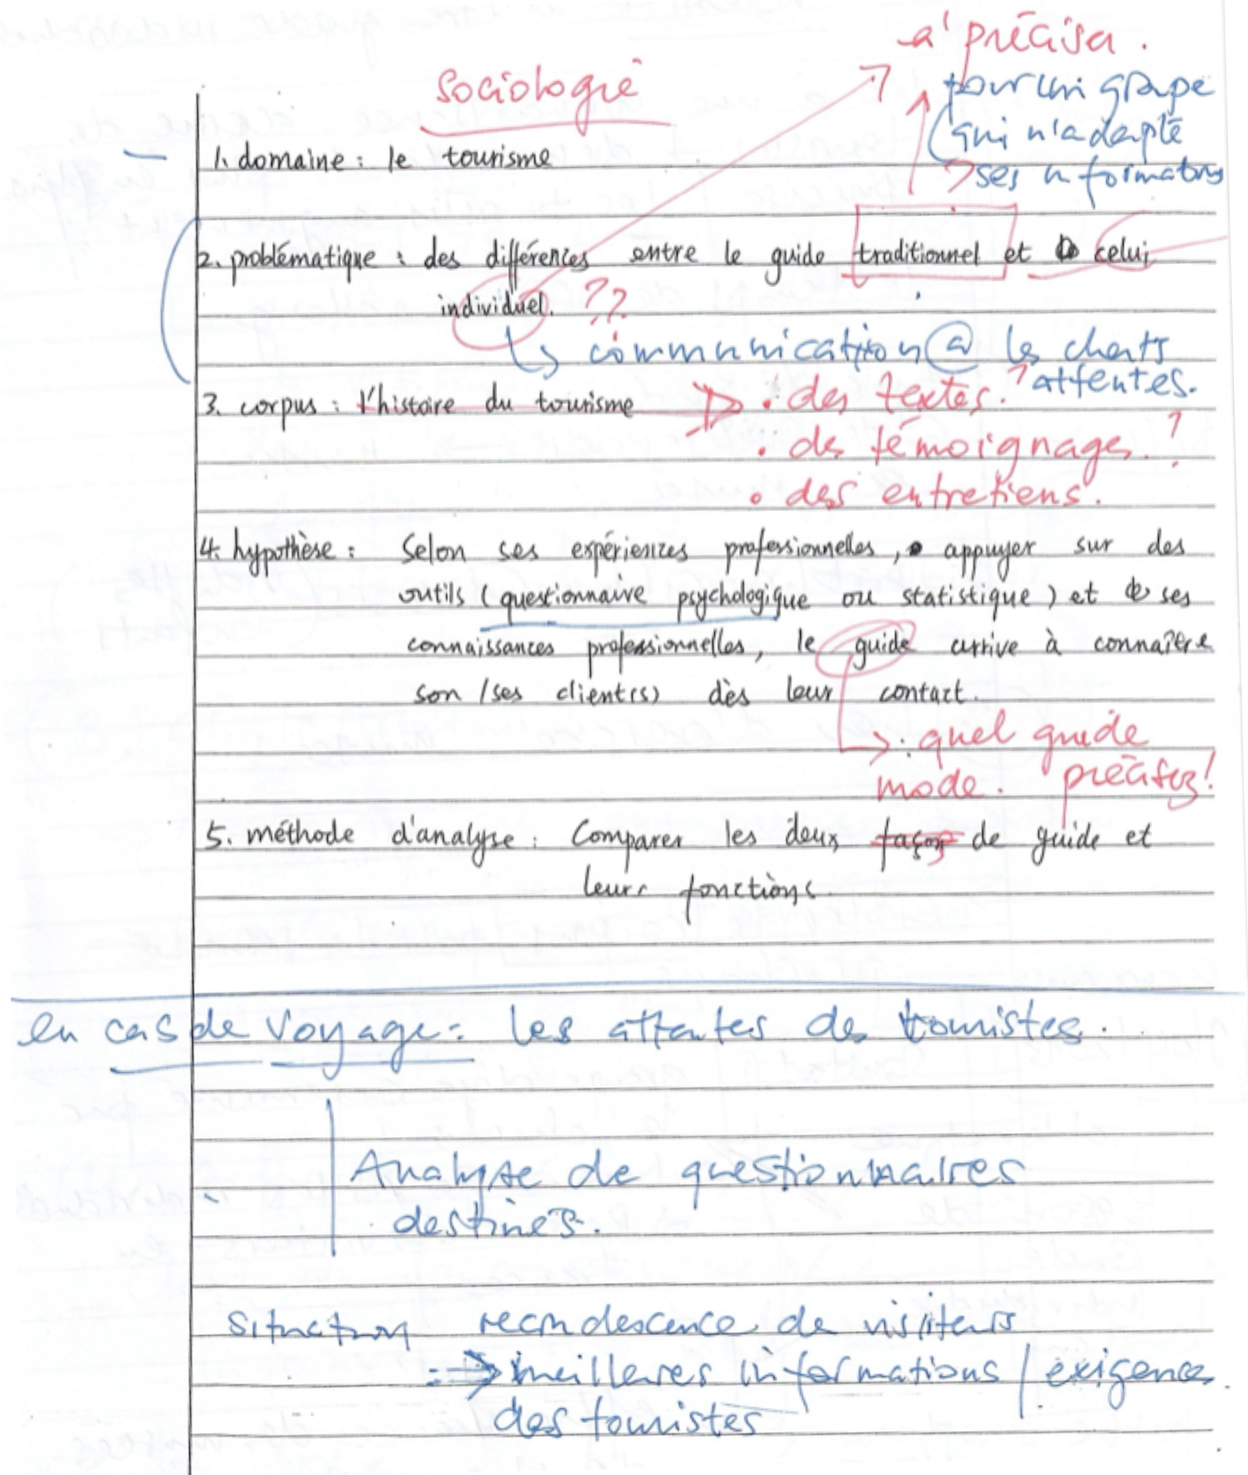 à préciser.
sociologie
pour un groupe
qui n'adapte
ses informations
1. domaine : le tourisme
2. problématique : des différences entre le guide traditionnel et celui
individuel. ??
communication @ les clients
attentes.
3. corpus : l'histoire du tourisme . des textes ?
. des témoignages ?
. des entretiens.
4. hypothèse : Selon ses expériences professionnelles, appuyer sur des
outils (questionnaire psychologique ou statistique) et ses
connaissances professionnelles, le guide arrive à connaître
son /ses client(s) dès leur contact.
quel guide
mode. précisez!
5. méthode d'analyse : Comparer les deux façon de guide et
leurs fonctions.
en cas de voyage : les attentes des touristes.
Analyse de questionnaires
destinés.
situation recrudescence de visiteurs
⇒ meilleures informations / exigence
des touristes